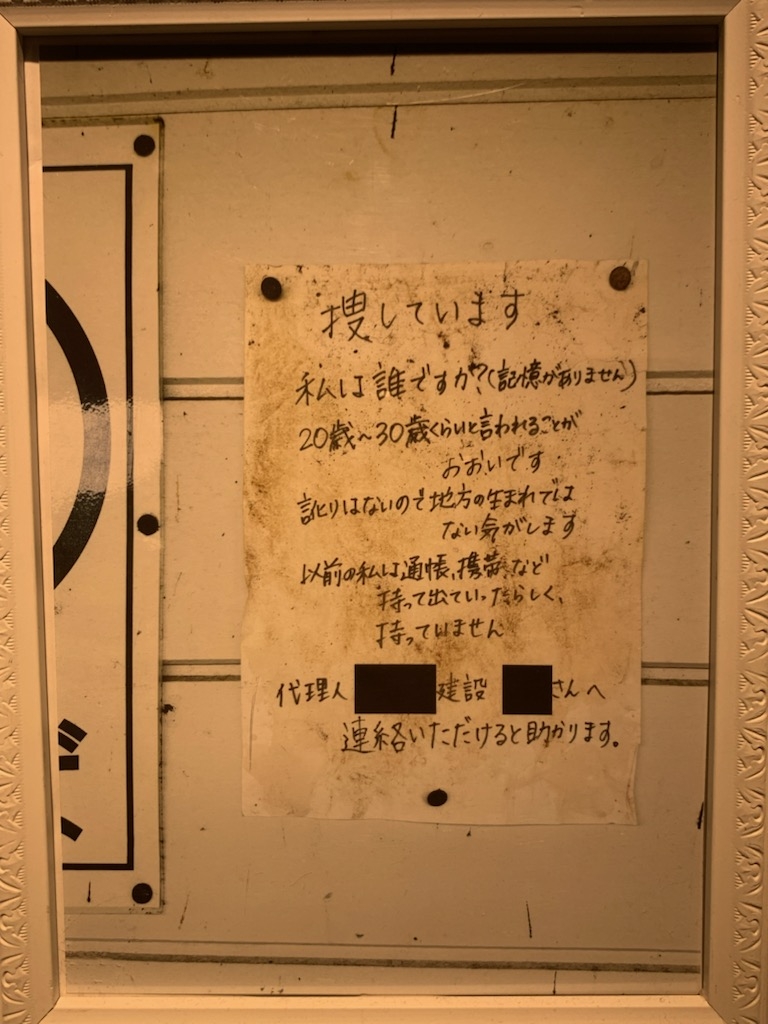 捜しています
私は誰ですか?(記憶がありません)
20歳~30歳くらいと言われることが
おおいです
訛りはないので地方の生まれでは
ない気がします
以前の私は通帳、携帯、など
持って出ていったらしく、
持っていません
代理人 建設 さんへ
連絡いただけると助かります。